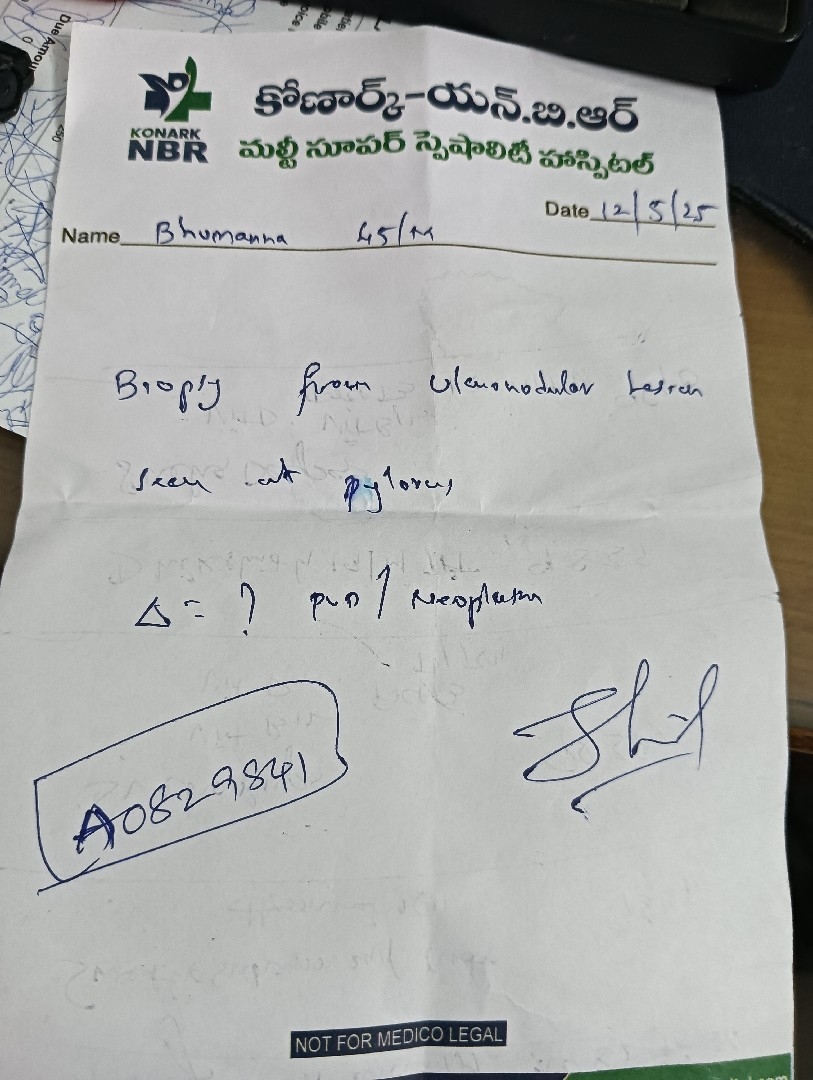 KONARK
NBR
కోణార్క్-యన్.బి.ఆర్
మల్టీ సూపర్ స్పెషాలిటీ హాస్పిటల్
Date 12/5/25
Name Bhumanna 45/M
Biopsy from ulceronodular lesion
seen at pylorus
Δ = ? PUD / Neoplasm
A0829841
NOT FOR MEDICO LEGAL